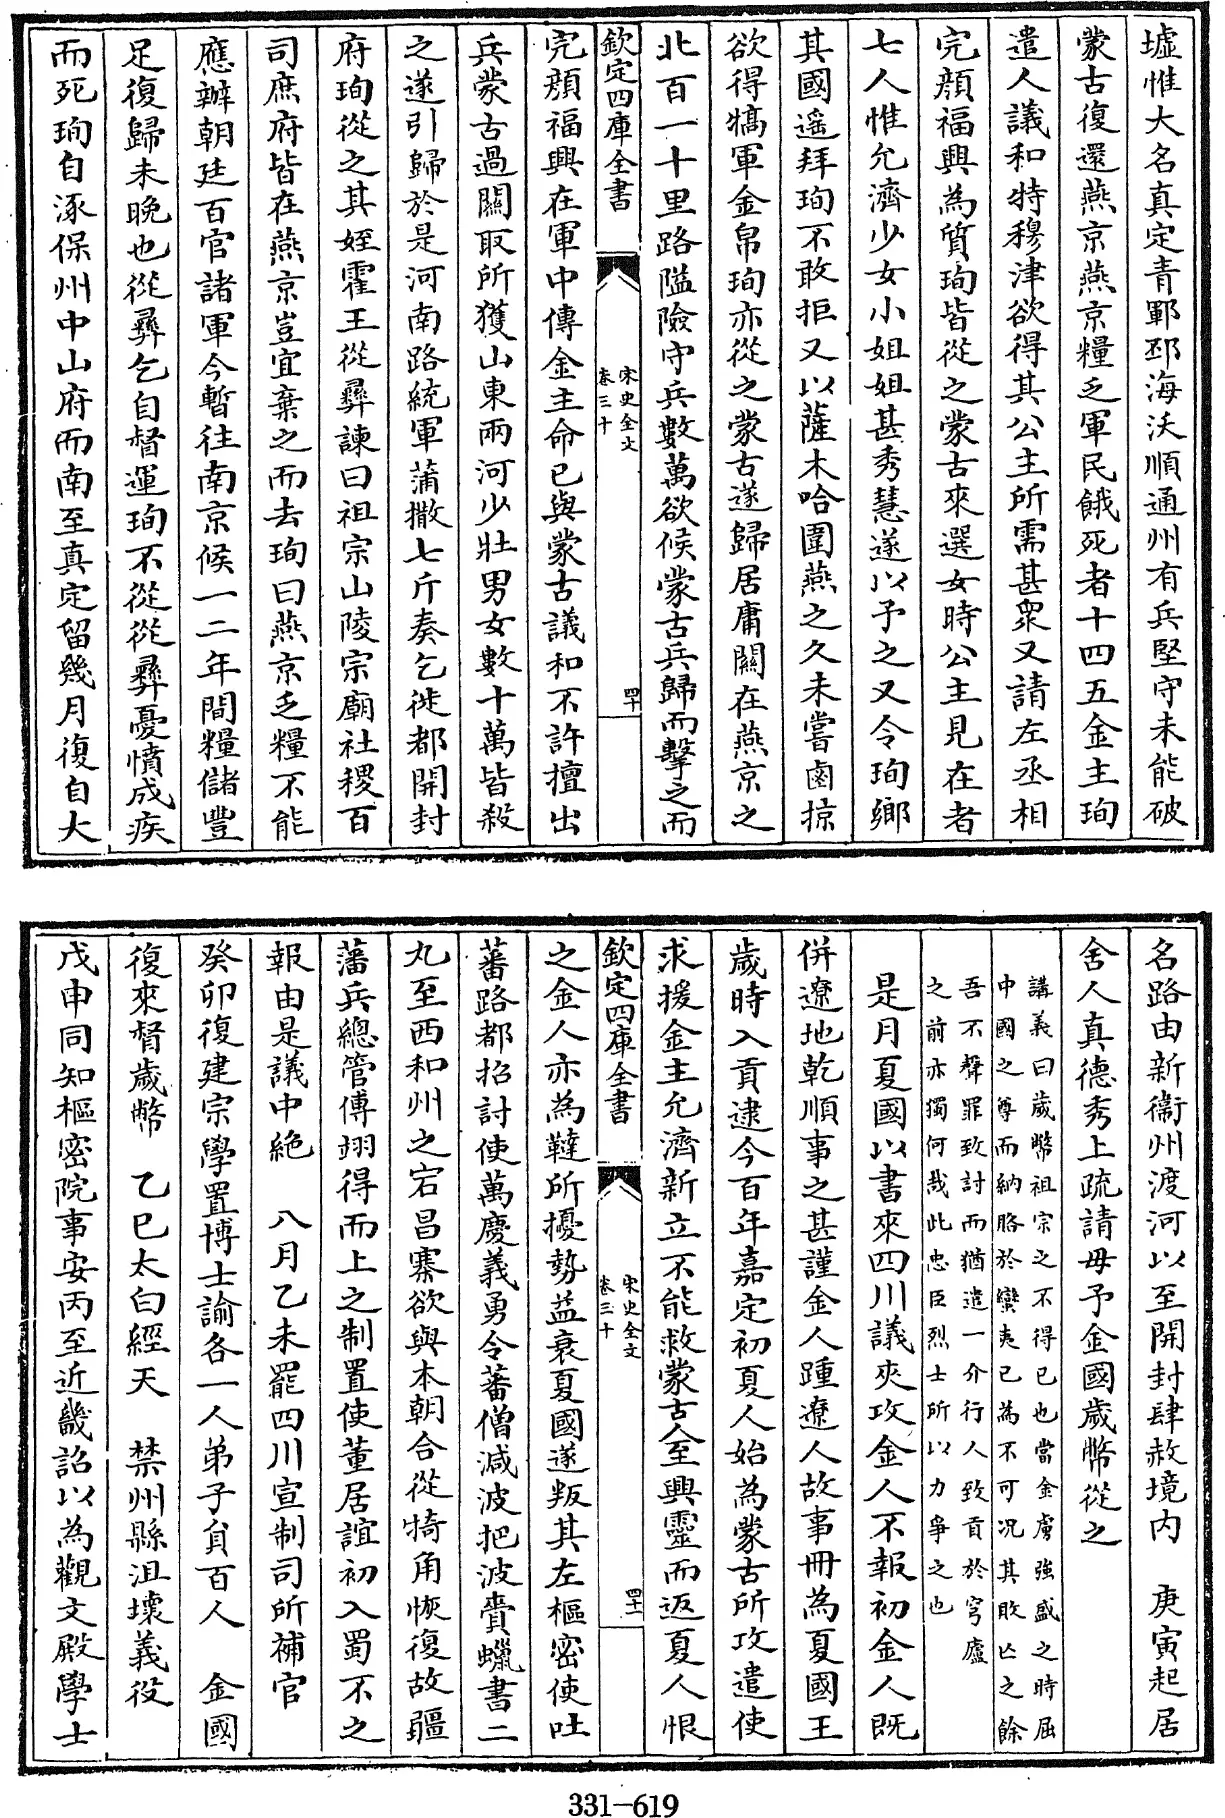 墟惟大名真定青鄆邳海沃順通州有兵堅守未能破
蒙古復還燕京燕京糧乏軍民餓死者十四五金主珣
遣人議和特穆津欲得其公主所需甚衆又請左丞相
完顔福興為質珣皆從之蒙古來選女時公主見在者
七人惟允濟少女小姐姐甚秀慧遂以予之又令珣鄉
其國遥拜珣不敢拒又以薩木哈圍燕之久未嘗鹵掠
欲得犒軍金帛珣亦從之蒙古遂歸居庸關在燕京之
北百一十里路隘險守兵數萬欲候蒙古兵歸而擊之而
欽定四庫全書
宋史全文
卷三十
四十
完顔福興在軍中傳金主命已與蒙古議和不許擅出
兵蒙古過關取所獲山東兩河少壯男女數十萬皆殺
之遂引歸於是河南路統軍蒲撒七斤奏乞徙都開封
府珣從之其姪霍王從彞諫曰祖宗山陵宗廟社稷百
司庶府皆在燕京豈宜棄之而去珣曰燕京乏糧不能
應辦朝廷百官諸軍今暫往南京候一二年間糧儲豐
足復歸未晚也從彞乞自督運珣不從從彞憂憤成疾
而死珣自涿保州中山府而南至真定留幾月復自大
名路由新衞州渡河以至開封肆赦境内　庚寅起居
舍人真德秀上疏請毋予金國歲幣從之
講義曰歲幣祖宗之不得已也當金虜強盛之時屈
中國之尊而納賂於蠻夷已為不可况其敗亡之餘
吾不聲罪致討而猶遣一介行人致貢於穹廬
之前亦獨何哉此忠臣烈士所以力爭之也
是月夏國以書來四川議夾攻金人不報初金人既
併遼地乾順事之甚謹金人踵遼人故事冊為夏國王
歲時入貢逮今百年嘉定初夏人始為蒙古所攻遣使
求援金主允濟新立不能救蒙古人至興靈而返夏人恨
欽定四庫全書
宋史全文
卷三十
四十一
之金人亦為韃所擾勢益衰夏國遂叛其左樞密使吐
蕃路都招討使萬慶義勇令蕃僧減波把波賫蠟書二
丸至西和州之宕昌寨欲與本朝合從犄角恢復故疆
藩兵總管傅翊得而上之制置使董居誼初入蜀不之
報由是議中絶　八月乙未罷四川宣制司所補官
癸卯復建宗學置博士諭各一人弟子員百人　金國
復來督歲幣　乙巳太白經天　禁州縣沮壞義役
戊申同知樞密院事安丙至近畿詔以為觀文殿學士
331-619